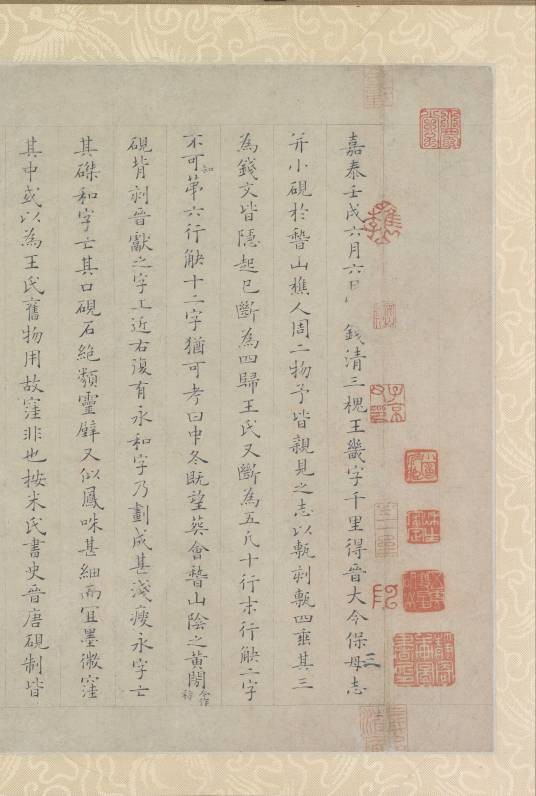 嘉泰壬戌六月六日錢清三槐王畿字千里得晉大令保母志
并小硯於稽山樵人周二物予皆親見之志以甎刻甎四垂其三
為錢文皆隱起已斷為四歸王氏又斷為五凡十行末行觖二字
不可知第六行觖十二字猶可考曰中冬既望葬會稽山陰之黃閍合作祊
硯背刻晉獻之字上近右復有永和字乃劃成甚淺瘦永字亡
其磔和字亡其口硯石絕類靈壁又似鳳咮甚細而宜墨微窪
其中或以為王氏舊物用故窪非也按米氏書史晉唐硯制皆